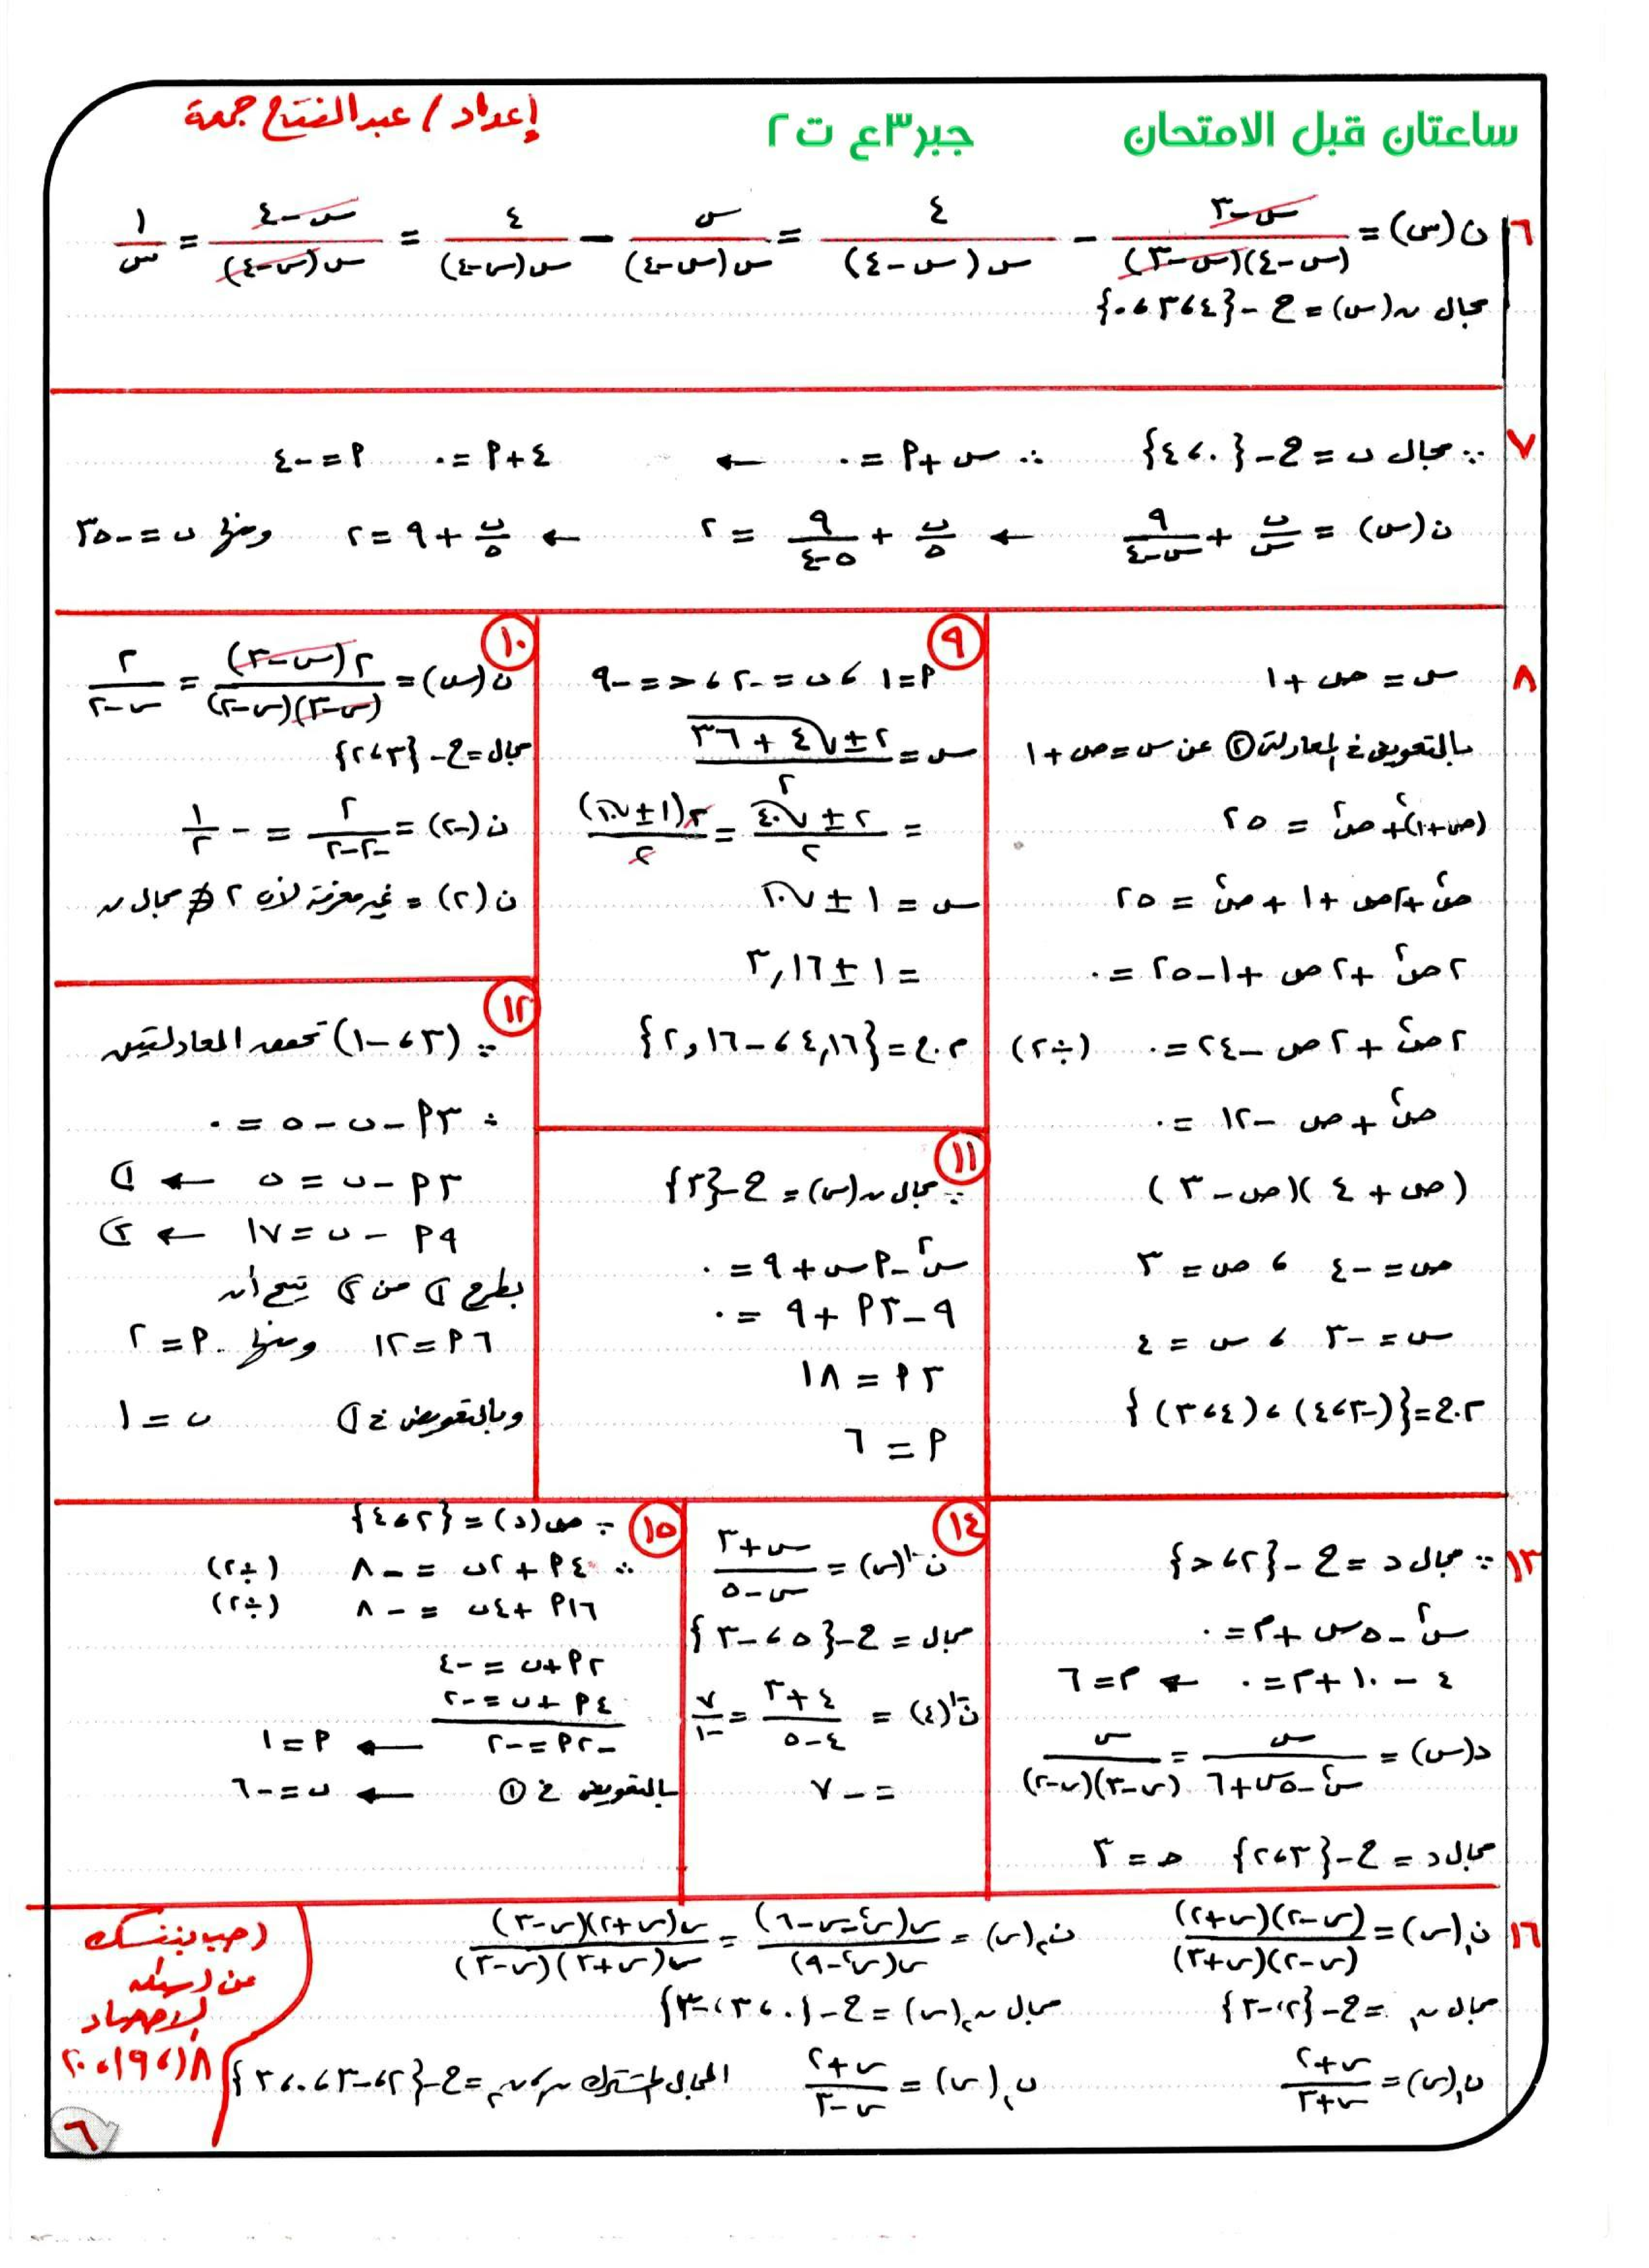 ساعتان قبل الامتحان
جبر ٣ع ت٢
إعداد / عبدالفتاح جمعة
٦ ن(س) = (س-٣)/((س-٤)(س-٣)) - ٤/(س(س-٤)) = س/(س(س-٤)) - ٤/(س(س-٤)) = (س-٤)/(س(س-٤)) = ١/س
مجال ن(س) = ح - {٤، ٣، ٠}
٧ ∵ مجال ن = ح - {٠، ٤} ∴ س + ٩ = ٠ ← ٤ + ٩ = ٠ ٩ = -٤
ن(س) = ب/س + ٩/(س-٤) ← ب/٥ + ٩/(٥-٤) = ٢ ← ب/٥ + ٩ = ٢ ومنها ب = -٣٥
٨ س = ص + ١
بالتعويض في المعادلة ② عن س = ص + ١
(ص+١)² + ص² = ٢٥
ص² + ٢ص + ١ + ص² = ٢٥
٢ص² + ٢ص + ١ - ٢٥ = ٠
٢ص² + ٢ص - ٢٤ = ٠ (÷٢)
ص² + ص - ١٢ = ٠
(ص + ٤)(ص - ٣)
ص = -٤ ، ص = ٣
س = -٣ ، س = ٤
م.ح = {(-٣، -٤)، (٤، ٣)}
٩ أ = ١ ، ب = -٢ ، ح = -٩
س = (٢ ± √(٤ + ٣٦))/٢
= (٢ ± √٤٠)/٢ = ٢(١ ± √١٠)/٢
س = ١ ± √١٠
= ١ ± ٣,١٦
م.ح = {٤,١٦ ، -٢,١٦}
١٠ ن(س) = ٢(س-٣)/((س-٣)(س-٢)) = ٢/(س-٢)
مجال = ح - {٣، ٢}
ن(-٢) = ٢/(-٢-٢) = -١/٢
ن(٢) = غير معرفة لأن ٢ ∉ مجال ن
١١ ∵ مجال ن(س) = ح - {٣}
س² - أس + ٩ = ٠
٩ - ٣أ + ٩ = ٠
٣أ = ١٨
أ = ٦
١٢ ∵ (٣، -١) تحقق المعادلتين
∴ ٣أ - ب - ٥ = ٠
٣أ - ب = ٥ ← ①
٩أ - ب = ١٧ ← ②
بطرح ① من ② ينتج أن
٦أ = ١٢ ومنها أ = ٢
وبالتعويض في ① ب = ١
١٣ ∵ مجال د = ح - {٢، ح}
س² - ٥س + م = ٠
٤ - ١٠ + م = ٠ ← م = ٦
د(س) = س/(س² - ٥س + ٦) = س/((س-٣)(س-٢))
مجال د = ح - {٣، ٢} ح = ٣
١٤ ن⁻¹(س) = (س+٣)/(س-٥)
مجال = ح - {٥، -٣}
ن⁻¹(٤) = (٤+٣)/(٤-٥) = ٧/-١
= -٧
١٥ ∵ ص(د) = {٢، ٤}
∴ ٤أ + ٢ب = -٨ (÷٢)
١٦أ + ٤ب = -٨ (÷٢)
٢أ + ب = -٤
٤أ + ب = -٢
-٢أ = -٢ ← أ = ١
بالتعويض في ① ← ب = -٦
١٦ ن₁(س) = (س-٢)(س+٢)/((س-٢)(س+٣)) ن₂(س) = س(س²-س-٦)/(س(س²-٩)) = س(س+٢)(س-٣)/(س(س+٣)(س-٣))
مجال ن₁ = ح - {٢، -٣} مجال ن₂(س) = ح - {٠، ٣، -٣}
ن₁(س) = (س+٢)/(س+٣) ن₂(س) = (س+٢)/(س-٣) المجال المشترك ن₁، ن₂ = ح - {٢، -٣، ٠، ٣}
أجب بنفسك
عن أسئلة
الإحصاء
١٨، ١٩، ٢٠
٦